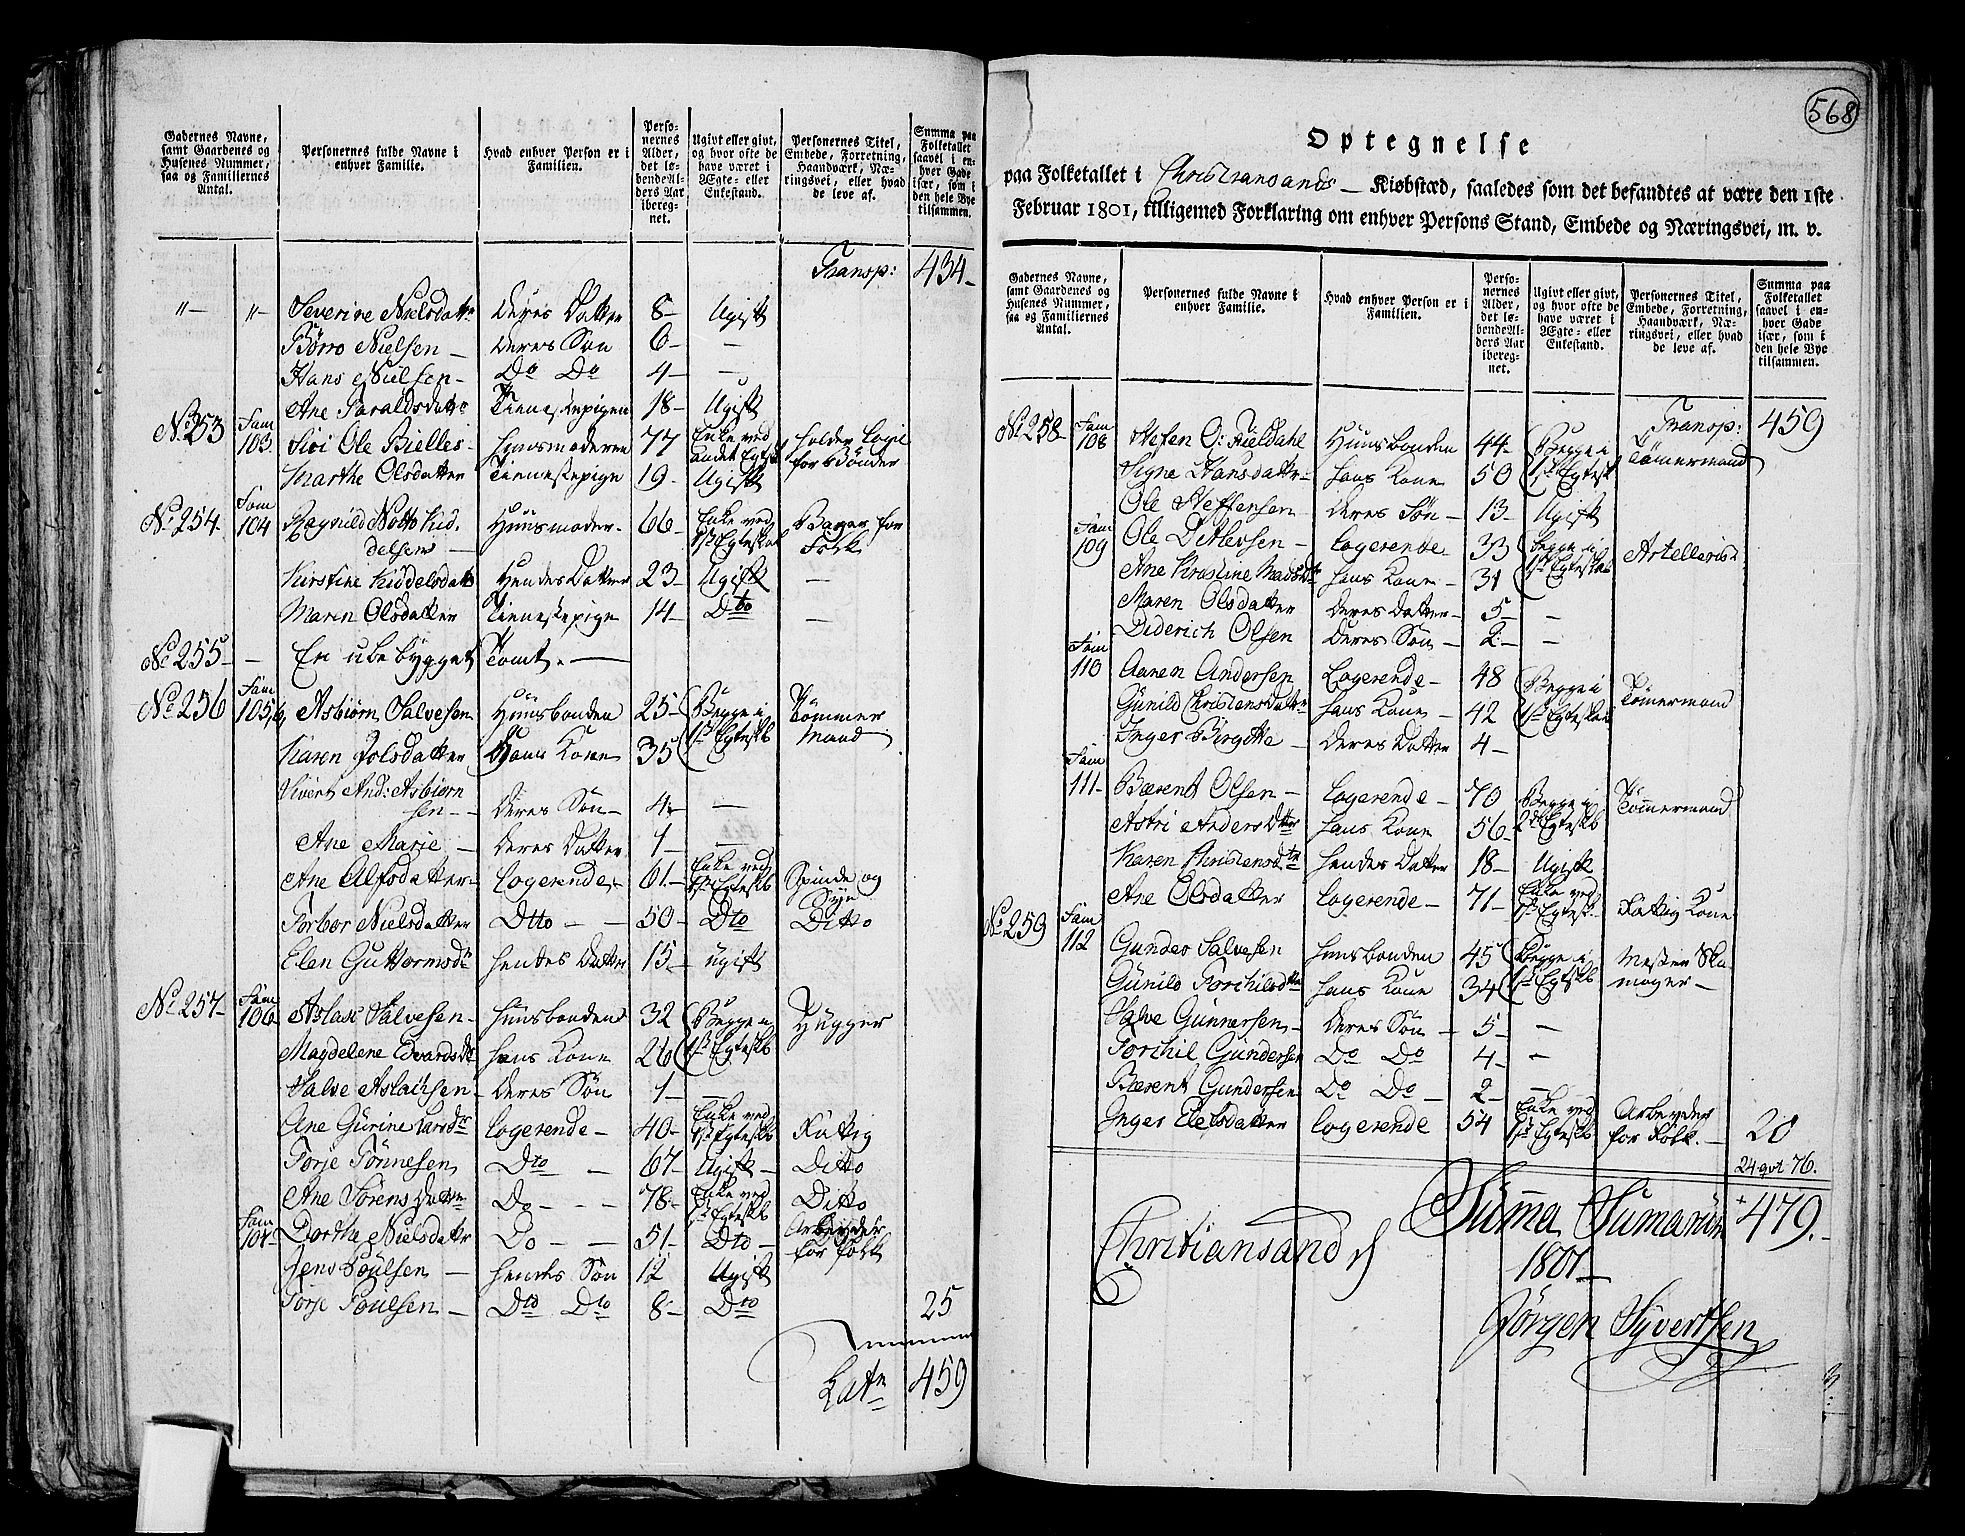 Gadernes Navne, samt Gaardenes og Husenes Nummer, saa og Familiernes Antal.
Personernes fulde Navne i enhver Familie.
Hvad enhver Person er i Familien.
Personernes Alder, det løbende Alders Aar iberegnet.
Ugivt eller givt, og hvor ofte de have været i Ægte- eller Enkestand.
Personernes Titel, Embede, Forretning, Haandværk, Næringsvei, eller hvad de leve af.
Summa paa Folketallet saavel i enhver Gade især, som i den hele Bye tilsammen.
Transp: 434-
"- "- Severine Nielsdattr deres Datter 8- Ugift
Børro Nielsen - deres Søn 6- -
Hans Nielsen - Do Do 4- -
Ane Taraldsdattr Tienestepigen 18- Ugift
No 253 Fam 103. Siri Ole Bielles- Huusmoderen 77 Enke ved andet Egtesk holder Logie for Bønder
Marthe Olsdatter Tienestepige 19- Ugift
No 254. Fam 104 Ragnild Notto Kid delsens - Huusmoder- 66- Enke ved 1ste Egteskab Bager for Folk
Kirstine Kiddelsdattr Hendes Datter 23- Ugift -
Maren Olsdatter Tienestepige 14- Dto -
No 255- - En ubebygget Tomt. -
No 256 Fam 105, Asbiørn Salvesen Huusbonden 25- Begge i 1ste Egteskb Tømmer Mand
Karen Jolsdatter Hans Kone 35
And: Asbiørn sen - deres Søn- 4- -
Ane Marie - deres Datter 1- -
Ane Alfsdatter- Logerende- 61- Enke ved 1ste Egteskb Spinde og Sye
Torbor Nielsdatter Dtto - - 50- Dto Ditto
Elen Guttormsdr hendes Datter 15- ugift
No 257- Fam 106 Aslac Salvesen- Huusbonden 32 Begge i 1ste Egteskb Hugger
Magdelene Edvardsdr hans Kone 26
Salve Aslachsen- deres Søn 1- -
Ane Gurine Larsdr Logerende- 40- Enke ved 1ste Egteskb Fattig
Torje Tønnesen Dto - 67- Ugift- Ditto
Ane Sørens Dattr Do - - - 78- Enke ved 1ste Egteskb Ditto
Fam 107- Dorthe Nielsdatr Do - - 51- Dto- Arbeyder for folk
Jens Poulsen - hendes Søn 12 Ugift
Torje Poulsen - Dto Dto 8- Dto 25
Latr 459
568
Optegnelse
paa Folketallet i Christiansands - Kiøbstæd, saaledes som det befandtes at være den 1ste
Februar 1801, tilligemed Forklaring om enhver Persons Stand, Embede og Næringsvei, m. v.
Gadernes Navne, samt Gaardenes og Husenes Nummer, saa og Familiernes Antal.
Personernes fulde Navne i enhver Familie.
Hvad enhver Person er i Familien.
Personernes Alder, det løbende Alders Aar iberegnet.
Ugivt eller givt, og hvor ofte de have været i Ægte- eller Enkestand.
Personernes Titel, Embede, Forretning, Haandværk, Næringsvei, eller hvad de leve af.
Summa paa Folketallet saavel i enhver Gade især, som i den hele Bye tilsammen.
Transp: 459
No 258- Fam 108 Stefen O: Fieldahl Huusbonden 44- Begge i 1ste Egtesk Tømermand
Signe Hansdattr- hans Kone 50
Ole Steffensen- deres Søn- 13- Ugift
Fam 109 Ole Ditlevsen - Logerende- 33 begge i 1ste Egteskb Artellerist
Ane Kirstine Madsdtr hans Kone- 31
Maren Olsdatter deres Datter- 5- -
Diderich Olsen deres Søn- 2- -
Fam 110 Aaren Andersen Logerende- 48 Begge i 1ste Egteskab Tømermand
Gunild Christensdattr hans Kone- 42
Inger Birgitte - deres Datter 4-
Fam 111- Bærent Olsen - Logerende- 70 Begge i 2det Egteskb Tømmermand
Astri Anders Dtter hans Kone 56
Karen Christensdtr hendes Datter 18- Ugift
Ane Olsdatter Logerende- 71- Enke ved 1ste Egtesk. Fattig Kone
No 259 Fam 112 Gunder Salvesen Huusbonden 45 Begge i 1ste Egteskb Mester Sko mager-
Gunild Torchilsdtr hans Kone 34
Salve Gundersen- deres Søn - 5- -
Torchil Gundersen Do Do 4- -
Bærent Gundersen Do Do - 2- -
Inger Elefsdatter Logerende 54 Enke ved 1ste Egteskb Arbeyder for Folk.- 20
24 76.
Christiansand d Summa Sumarum 479.-
1801-
Jørgen Syvertsen